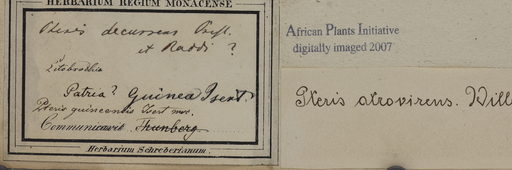 HERBARIUM REGIUM MONACENSE
Pteris decurrens Presl.
et Raddi ?
Litobrochia
Patria? Guinea Isert.
Pteris guineensis Isert mss.
Communicavit Thunberg
Herbarium Schreberianum.
African Plants Initiative
digitally imaged 2007
Pteris atrovirens. Willd